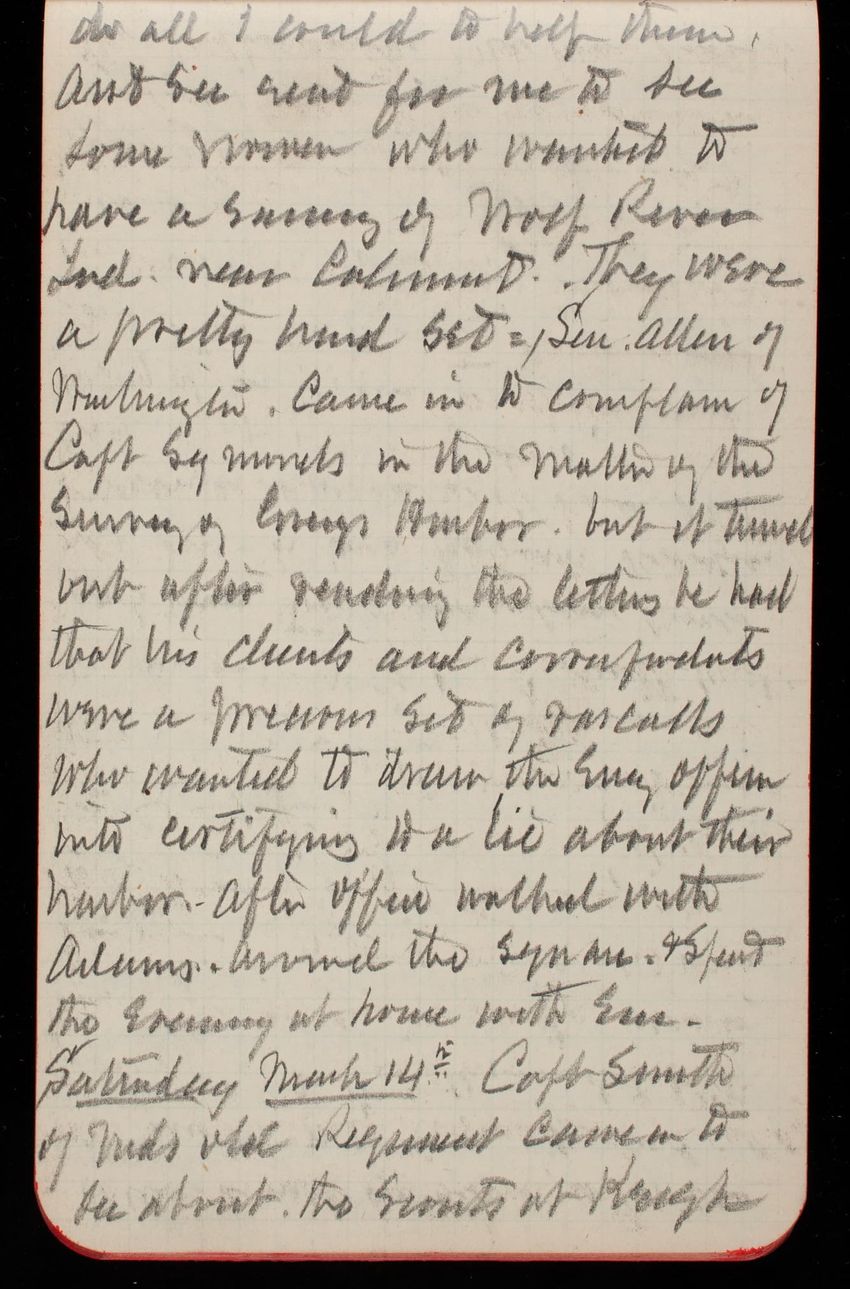 do all I could to help them,
And Sec send for me to see
some women who wanted to
have a survey of Wolf River
Ind. near Calumet. They were
a pretty hard set = Sen. Allen of
Washington. Came in to complain of
Capt Symonds in the matter of the
Survey of Grays Harbor. but it turned
out after reading the letters he had
that his clients and correspondents
were a precious set of rascalls
who wanted to draw the Eng officer
into certifying to a lie about their
harbor - After office walked with
Adams. around the square. & Spent
the Evening at home with Em -
Saturday March 14th Capt Smith
of old Regiment came in to
see about. the Scouts at Keogh